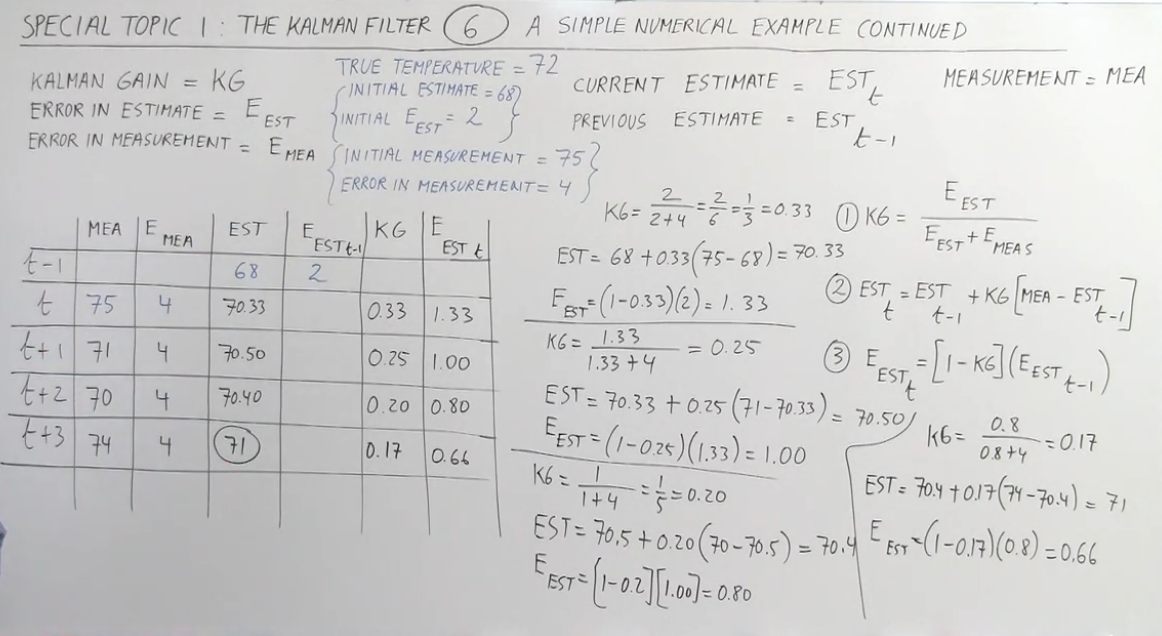 SPECIAL TOPIC 1 : THE KALMAN FILTER 6 A SIMPLE NUMERICAL EXAMPLE CONTINUED
KALMAN GAIN = KG
ERROR IN ESTIMATE = E EST
ERROR IN MEASUREMENT = E MEA
TRUE TEMPERATURE = 72
{INITIAL ESTIMATE = 68}
{INITIAL E EST = 2}
{INITIAL MEASUREMENT = 75}
{ERROR IN MEASUREMENT = 4}
CURRENT ESTIMATE = EST t
PREVIOUS ESTIMATE = EST t-1
MEASUREMENT = MEA
MEA E MEA EST E EST t-1 KG E EST t
t-1 68 2
t 75 4 70.33 0.33 1.33
t+1 71 4 70.50 0.25 1.00
t+2 70 4 70.40 0.20 0.80
t+3 74 4 71 0.17 0.66
KG = 2/2+4 = 2/6 = 1/3 = 0.33
EST = 68 + 0.33(75-68) = 70.33
E EST = (1-0.33)(2) = 1.33
KG = 1.33/1.33+4 = 0.25
EST = 70.33 + 0.25(71-70.33) = 70.50
E EST = (1-0.25)(1.33) = 1.00
KG = 1/1+4 = 1/5 = 0.20
EST = 70.5 + 0.20(70-70.5) = 70.4
E EST = [1-0.2][1.00] = 0.80
① KG = E EST / E EST + E MEAS
② EST t = EST t-1 + KG[MEA - EST t-1]
③ E EST t = [1-KG](E EST t-1)
KG = 0.8/0.8+4 = 0.17
EST = 70.4 + 0.17(74-70.4) = 71
E EST = (1-0.17)(0.8) = 0.66